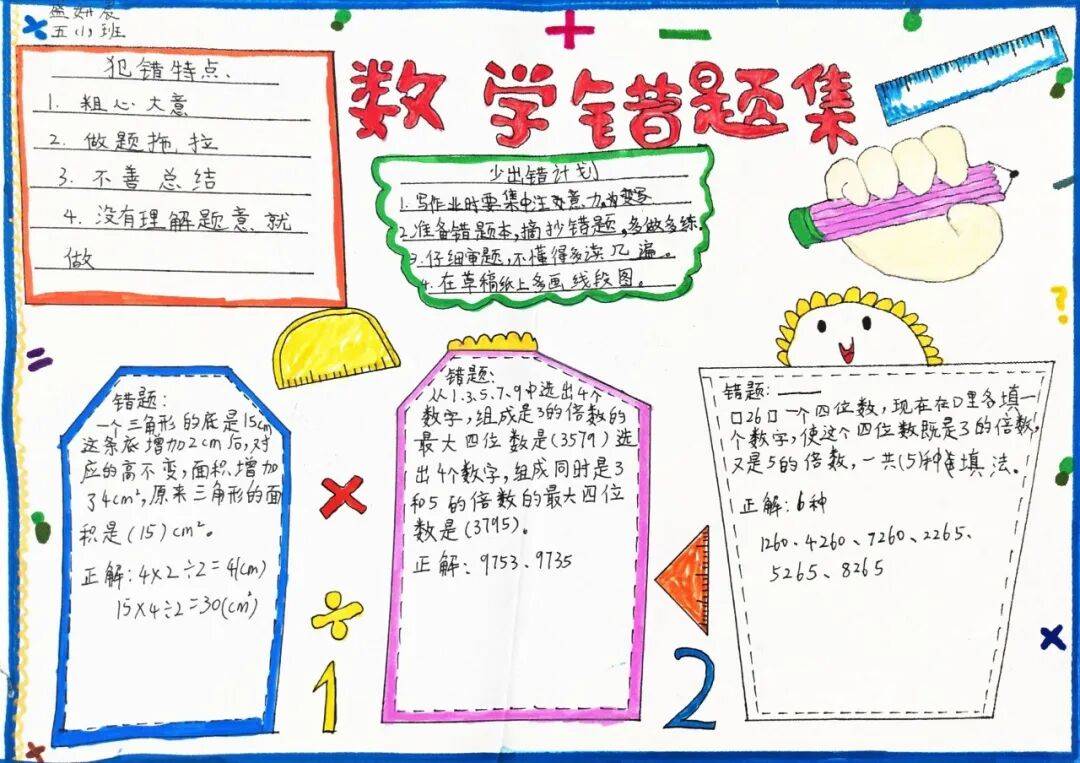 五(1)班
数学错题集
犯错特点、
1. 粗心大意
2. 做题拖拉
3. 不善总结
4. 没有理解题意就
做
少出错计划
1. 写作业时要集中注意力,
2. 准备错题本,摘抄错题,多做多练.
3. 仔细审题,不懂得多读几遍。
4. 在草稿纸上多画线段图。
错题:
一个三角形的底是15cm
这条底增加2cm后,对
应的高不变,面积增加
34cm²,原来三角形的面
积是(15)cm²。
正解:4×2÷2=4(cm)
15×4÷2=30(cm²)
错题:
从1.3.5.7.9中选出4个
数字,组成是3的倍数的
最大四位数是(3579)选
出4个数字,组成同时是3
和5的倍数的最大四位
数是(3795)。
正解:9753、9735
错题:
口26口一个四位数,现在在口里各填一
个数字,使这个四位数既是3的倍数,
又是5的倍数,一共(5)种填法。
正解:6种
1260、4260、7260、2265、
5265、8265
1
2